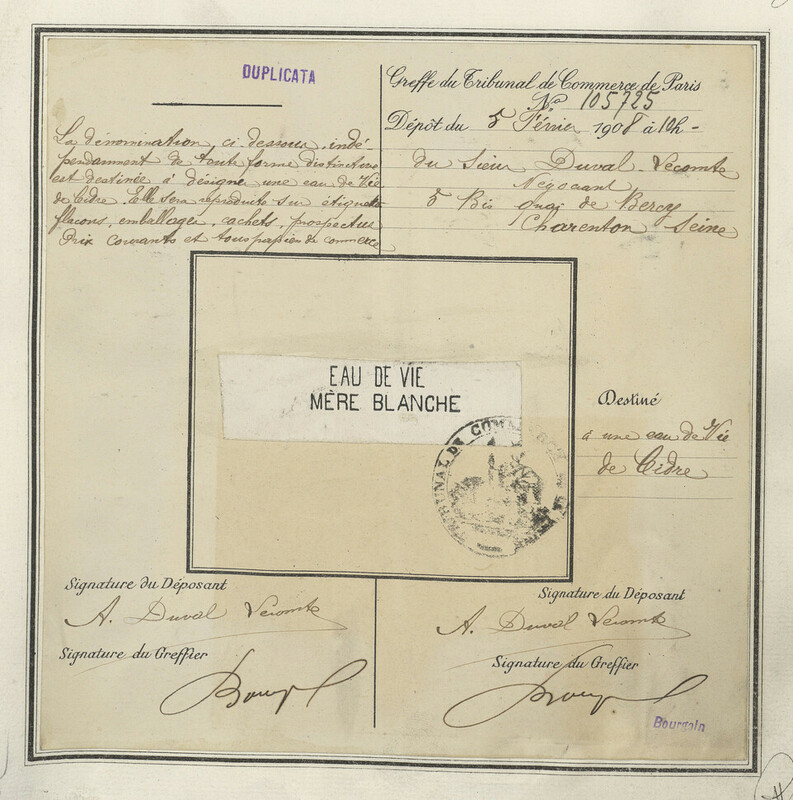 DUPLICATA
La dénomination, ci dessous, indé-
pendamment de toute forme distinctive
est destinée à désigner une eau de Vie
de Cidre. Elle sera reproduite sur étiquettes
flacons, emballages, cachets, prospectus
Prix courants et tous papiers de commerce
Greffe du Tribunal de Commerce de Paris
No 105725
Dépôt du 5 Février 1908 à 10h -
du Sieur Duval-Lecomte
Négociant
5 Bis quai de Bercy
Charenton Seine
EAU DE VIE
MÈRE BLANCHE
TRIBUNAL DE COMM
Destiné
à une eau de Vie
de Cidre
Signature du Déposant
A. Duval Lecomte
Signature du Greffier
Signature du Déposant
A. Duval Lecomte
Signature du Greffier
Bourgoin